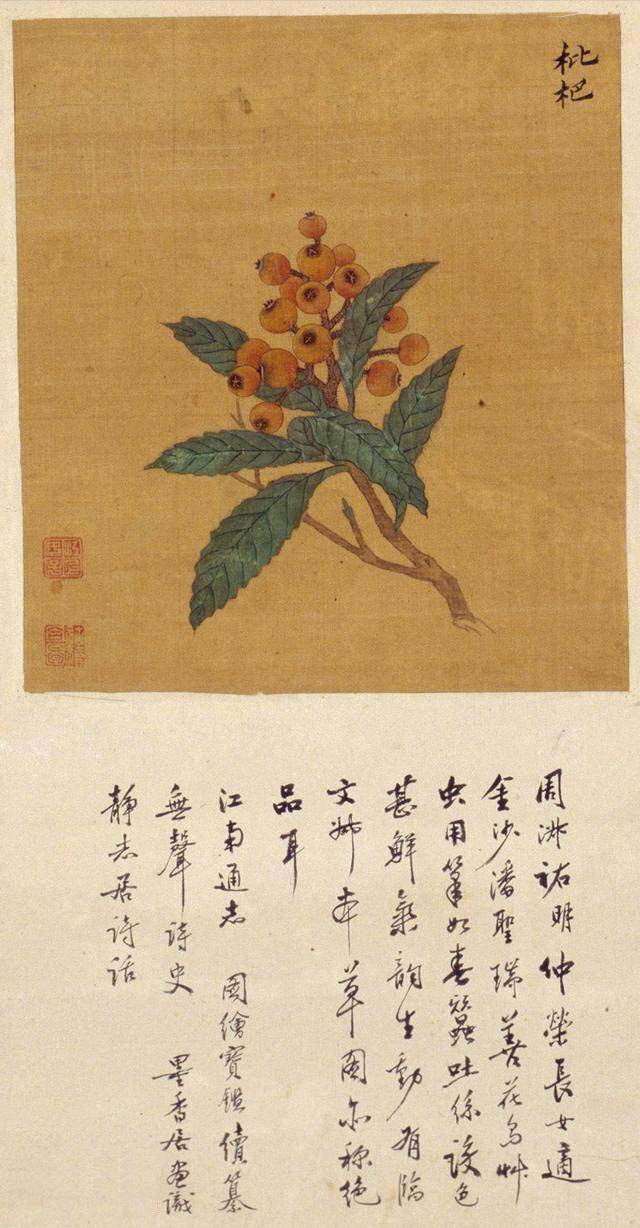 枇杷
周淑祐明仲榮長女適
金沙潘聖瑞善花鳥艸
虫用筆如春蠶吐絲設色
甚鮮氣韻生動有臨
文姊本草圖亦稱絕
品耳
江南通志 圖繪寶鑑續纂
無聲詩史 墨香居畫識
靜志居詩話